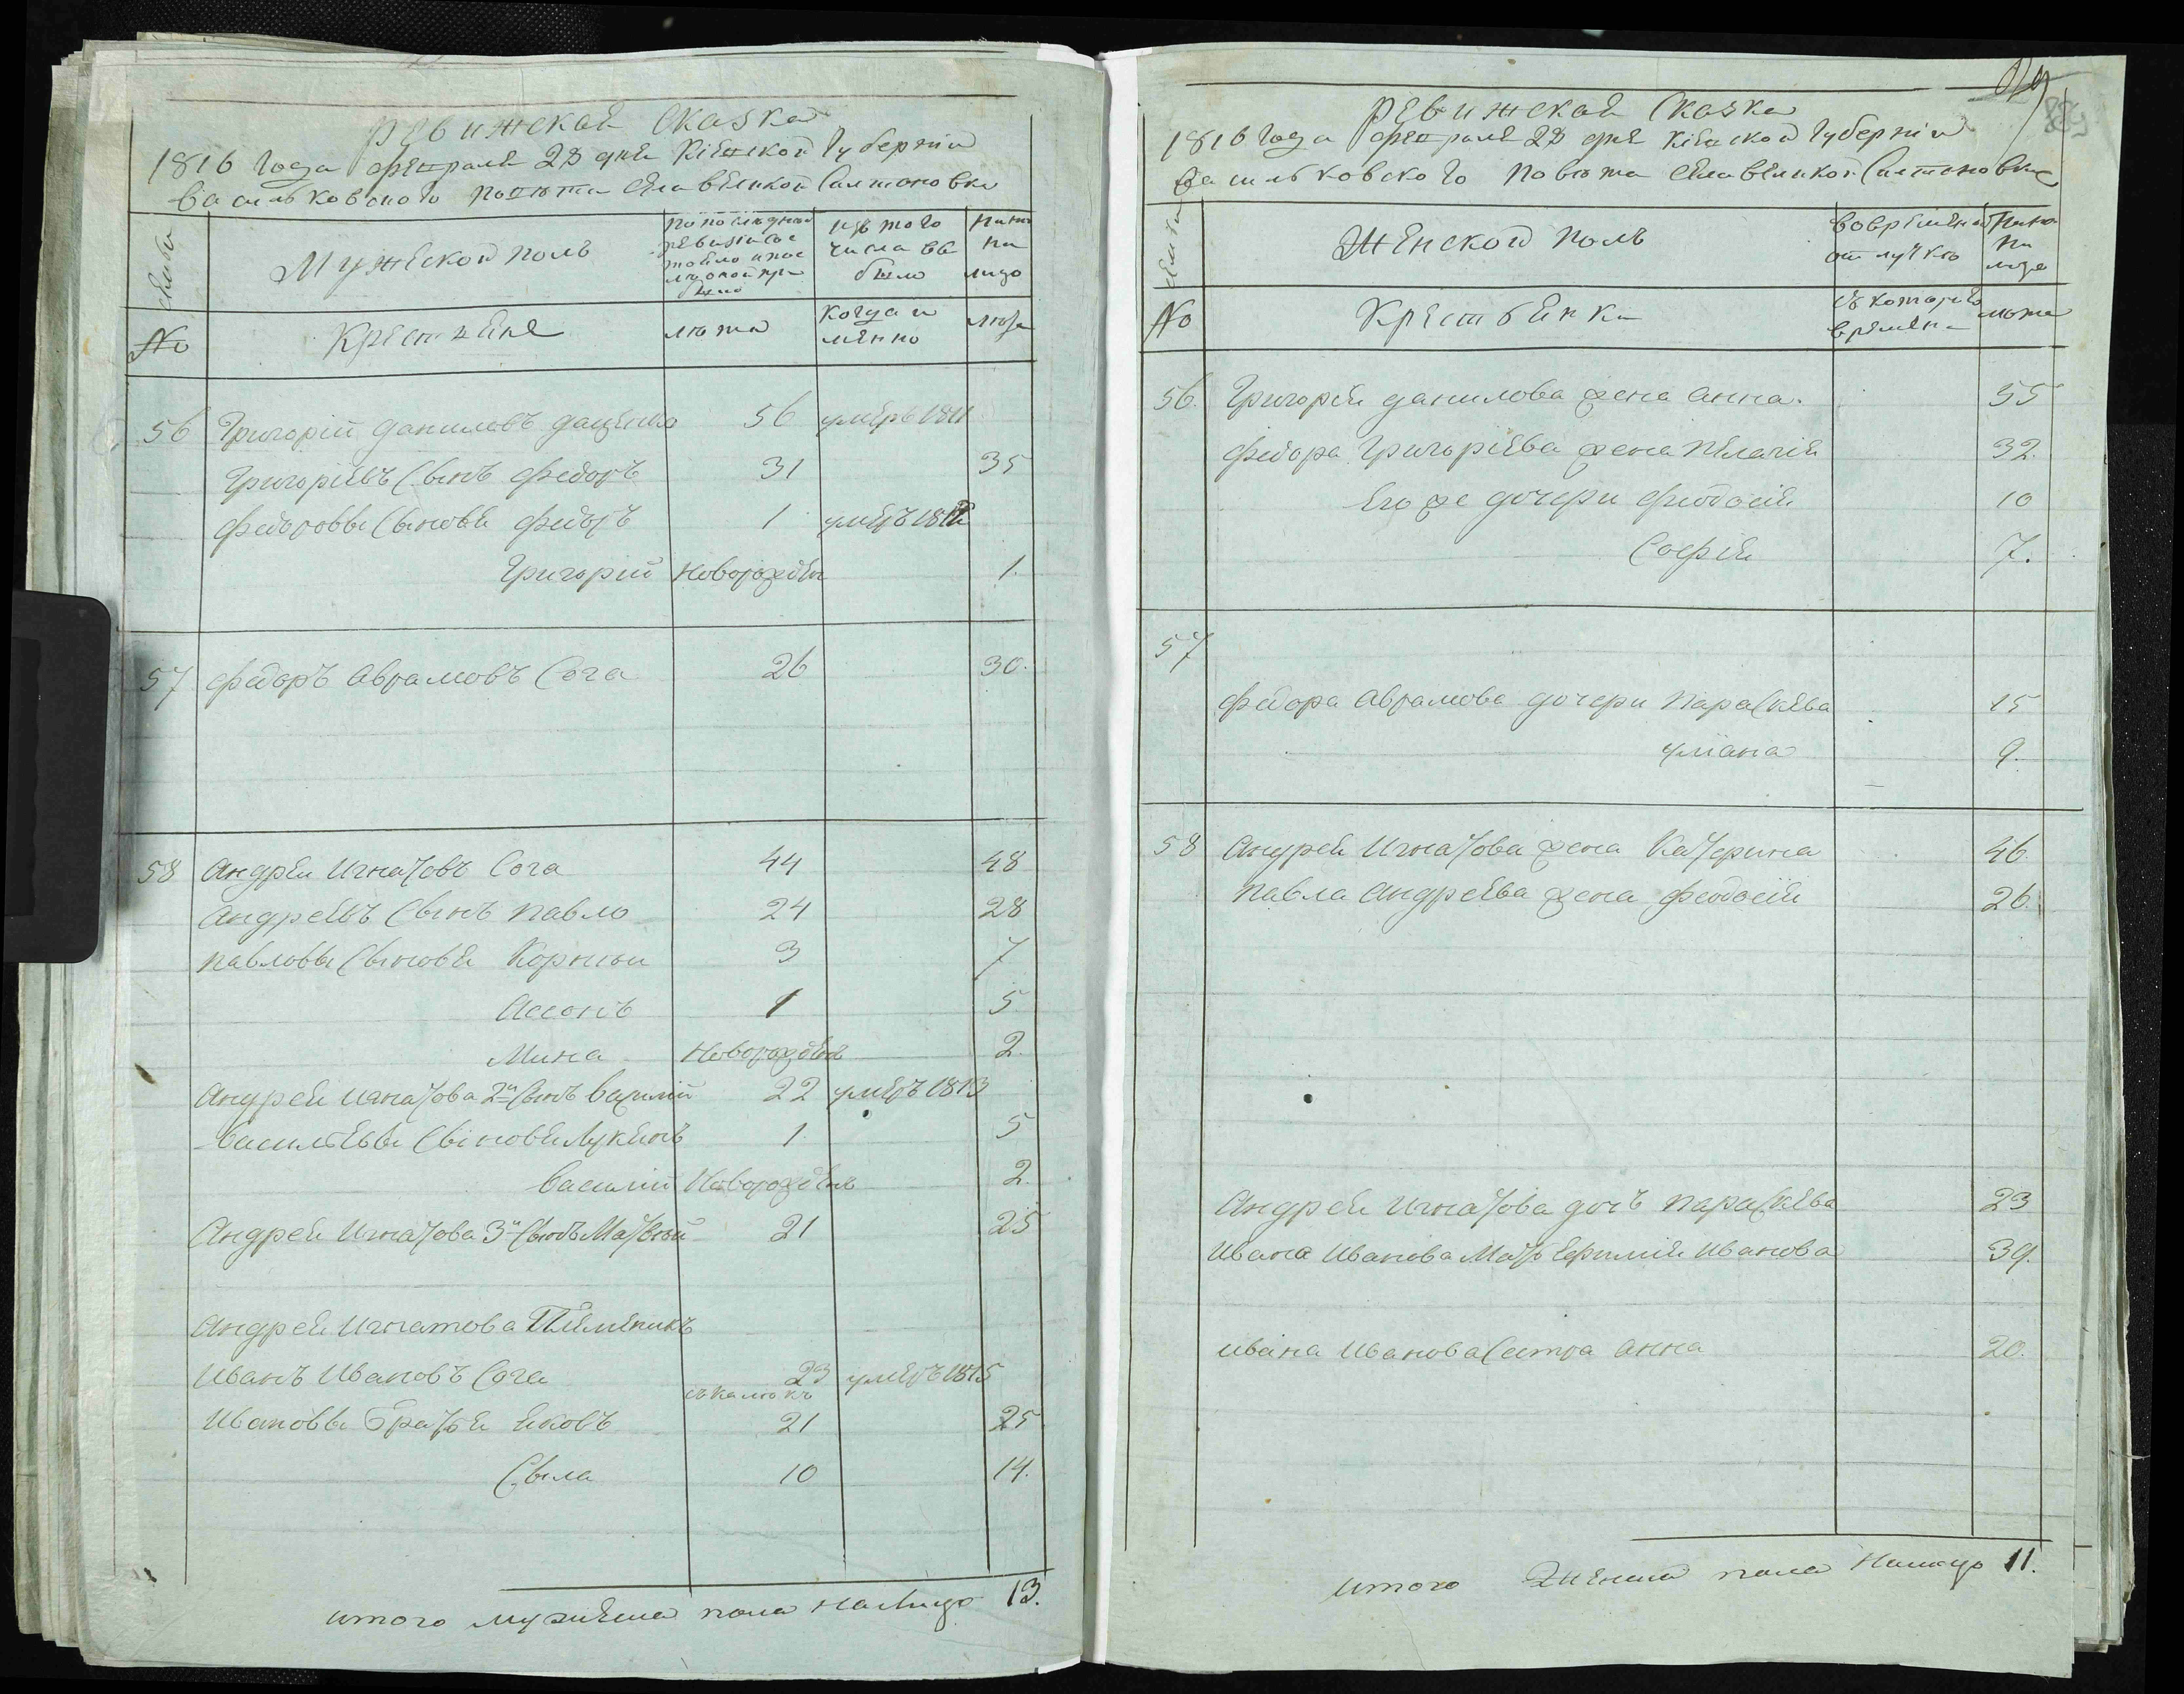 Ревижская Сказка
1816 Года февраля 28 дня Кіевской Губерніи
Васильковского повѣта села Великой Салтановки
семьи
Мужеской полъ
по последней
ревизіи со
стояло и после
было
изъ того
числа вы
было
ныне
на
лицо
№
Крестяне
лѣта
Когда и
менно
лѣта
56 Григорій Даниловъ Даценко 56 умеръ 1811
Григоріевъ Сынъ Федоръ 31 35
Федоровы Сыновья Федоръ 1 умеръ 1812
Григорій Новорожден 1.
57 Федоръ Аврамовъ Сога 26 30.
58 Андрей Игнатовъ Сога 44 48
Андреевъ Сынъ Павло 24 28
Павловы Сыновья Корнѣи 3 7
Ассонъ 1 5
Мина Новорожденъ 2.
Андрея Игнатова 2й Сынъ Василій 22 умеръ 1813
Васильевы Сыновья Лукянъ 1. 5
Василий Новорожденъ 2.
Андрея Игнатова 3й Сынъ Матвѣй 21 25
Андрея Игнатова Племеникъ
Иванъ Ивановъ Сога 23 умеръ 1815
Ивановы Братья Яковъ 21 25
Сыла 10 14.
итого мужеска пола налицо 13.
Ревижская Сказка
1816 Года февраля 28 дня Кіевской Губерніи
Васильковского Повѣта села Великой Салтановки
семьи
Женской полъ
вовременной
отлучке
ныне
на
лицо
№
Крестьянки
съ которого
времени
лѣта
56. Григорія Данилова жена Анна. 55
Федора Григоріева жена Пелагія 32.
Его же дочери Феодосія 10
Софія 7.
57
Федора Аврамова дочери Параскева 15
Уліана 9.
58 Андрея Игнатова жена Катерина 46.
Павла Андреева жена Феодосія 26.
Андрея Игнатова дочъ Параскева 23
Ивана Иванова Мать Ефимія Иванова 39.
Ивана Иванова Сестра Анна 20.
итого Женска пола Налицо 11.